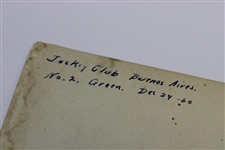 Jockey Club Buenos Aires.
No. 2. Green. Dec 24-20